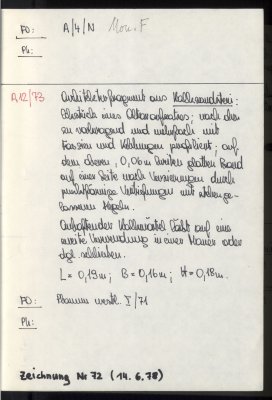 FO: A/4/N Mon.F
Ph:
A 12/73 Architekturfragment aus Kalksandstein:
Eckstück eines Altaraufsatzes; nach oben
zu vorkragend und mehrfach mit
Faszien und Kehlungen profiliert; auf
dem oberen, 0,06 m breiten glatten Band
auf einer Seite noch Verzierungen durch
punktförmige Vertiefungen mit stehenge-
lassenen Kegeln.
Anhaftender Kalkmörtel läßt auf eine
zweite Verwendung in einer Mauer oder
dgl. schließen.
L = 0,19 m; B = 0,16 m; H = 0,18 m.
FO: Planum westl. I/71
Ph:
Zeichnung Nr 72 (14.6.78)